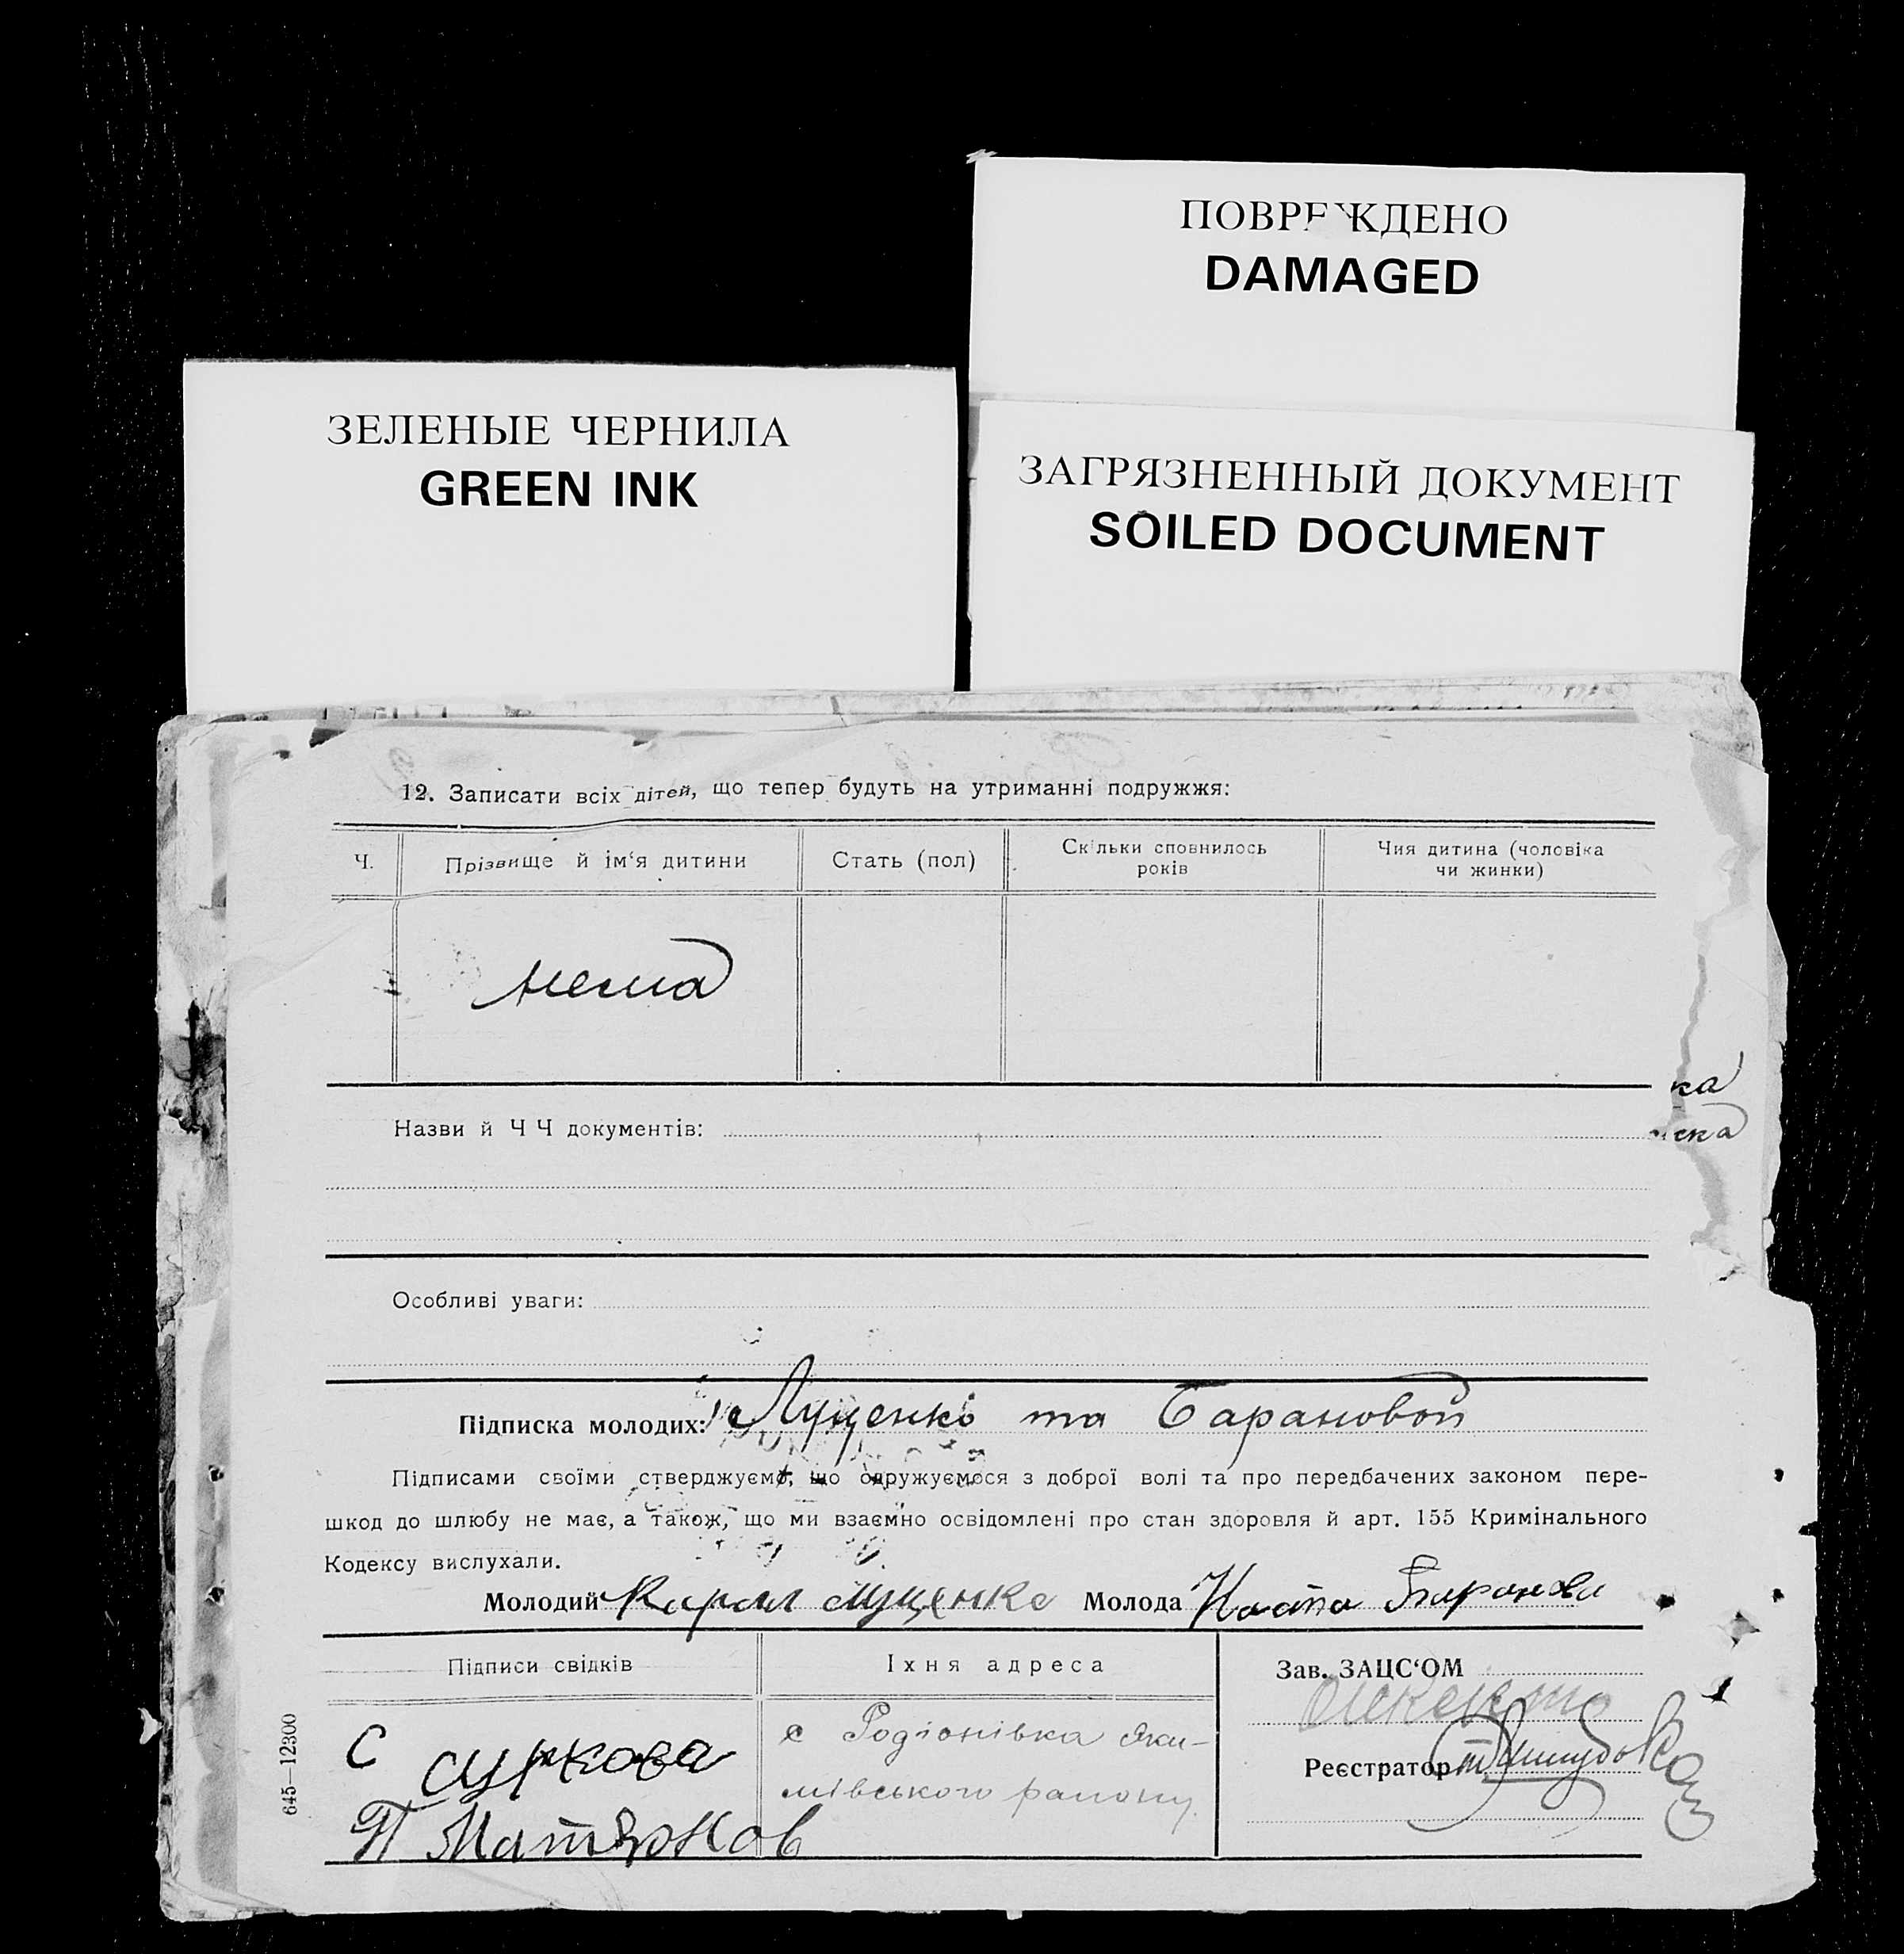 ПОВРЕЖДЕНО
DAMAGED
ЗЕЛЕНЫЕ ЧЕРНИЛА
GREEN INK
ЗАГРЯЗНЕННЫЙ ДОКУМЕНТ
SOILED DOCUMENT
12. Записати всіх дітей, що тепер будуть на утриманні подружжя:
Ч.
Прізвище й ім‘я дитини
Стать (пол)
Скільки сповнилось
років
Чия дитина (чоловіка
чи жинки)
нема
ка
ска
Назви й Ч Ч документів:
Особливі уваги:
Підписка молодих: Луценко та Барановой
Підписами своїми стверджуємо, що одружуємося з доброї волі та про передбачених законом пере-
шкод до шлюбу не має, а також, що ми взаємно освідомлені про стан здоровля й арт. 155 Кримінального
Кодексу вислухали.
Молодий Карпл Луценко Молода Настя Баранова
Підписи свідків
Їхня адреса
Зав. ЗАЦС‘ОМ
С Суркова
П Матюков
с Родіонівка Яки-
мівського району.
Реєстратор
645—12300